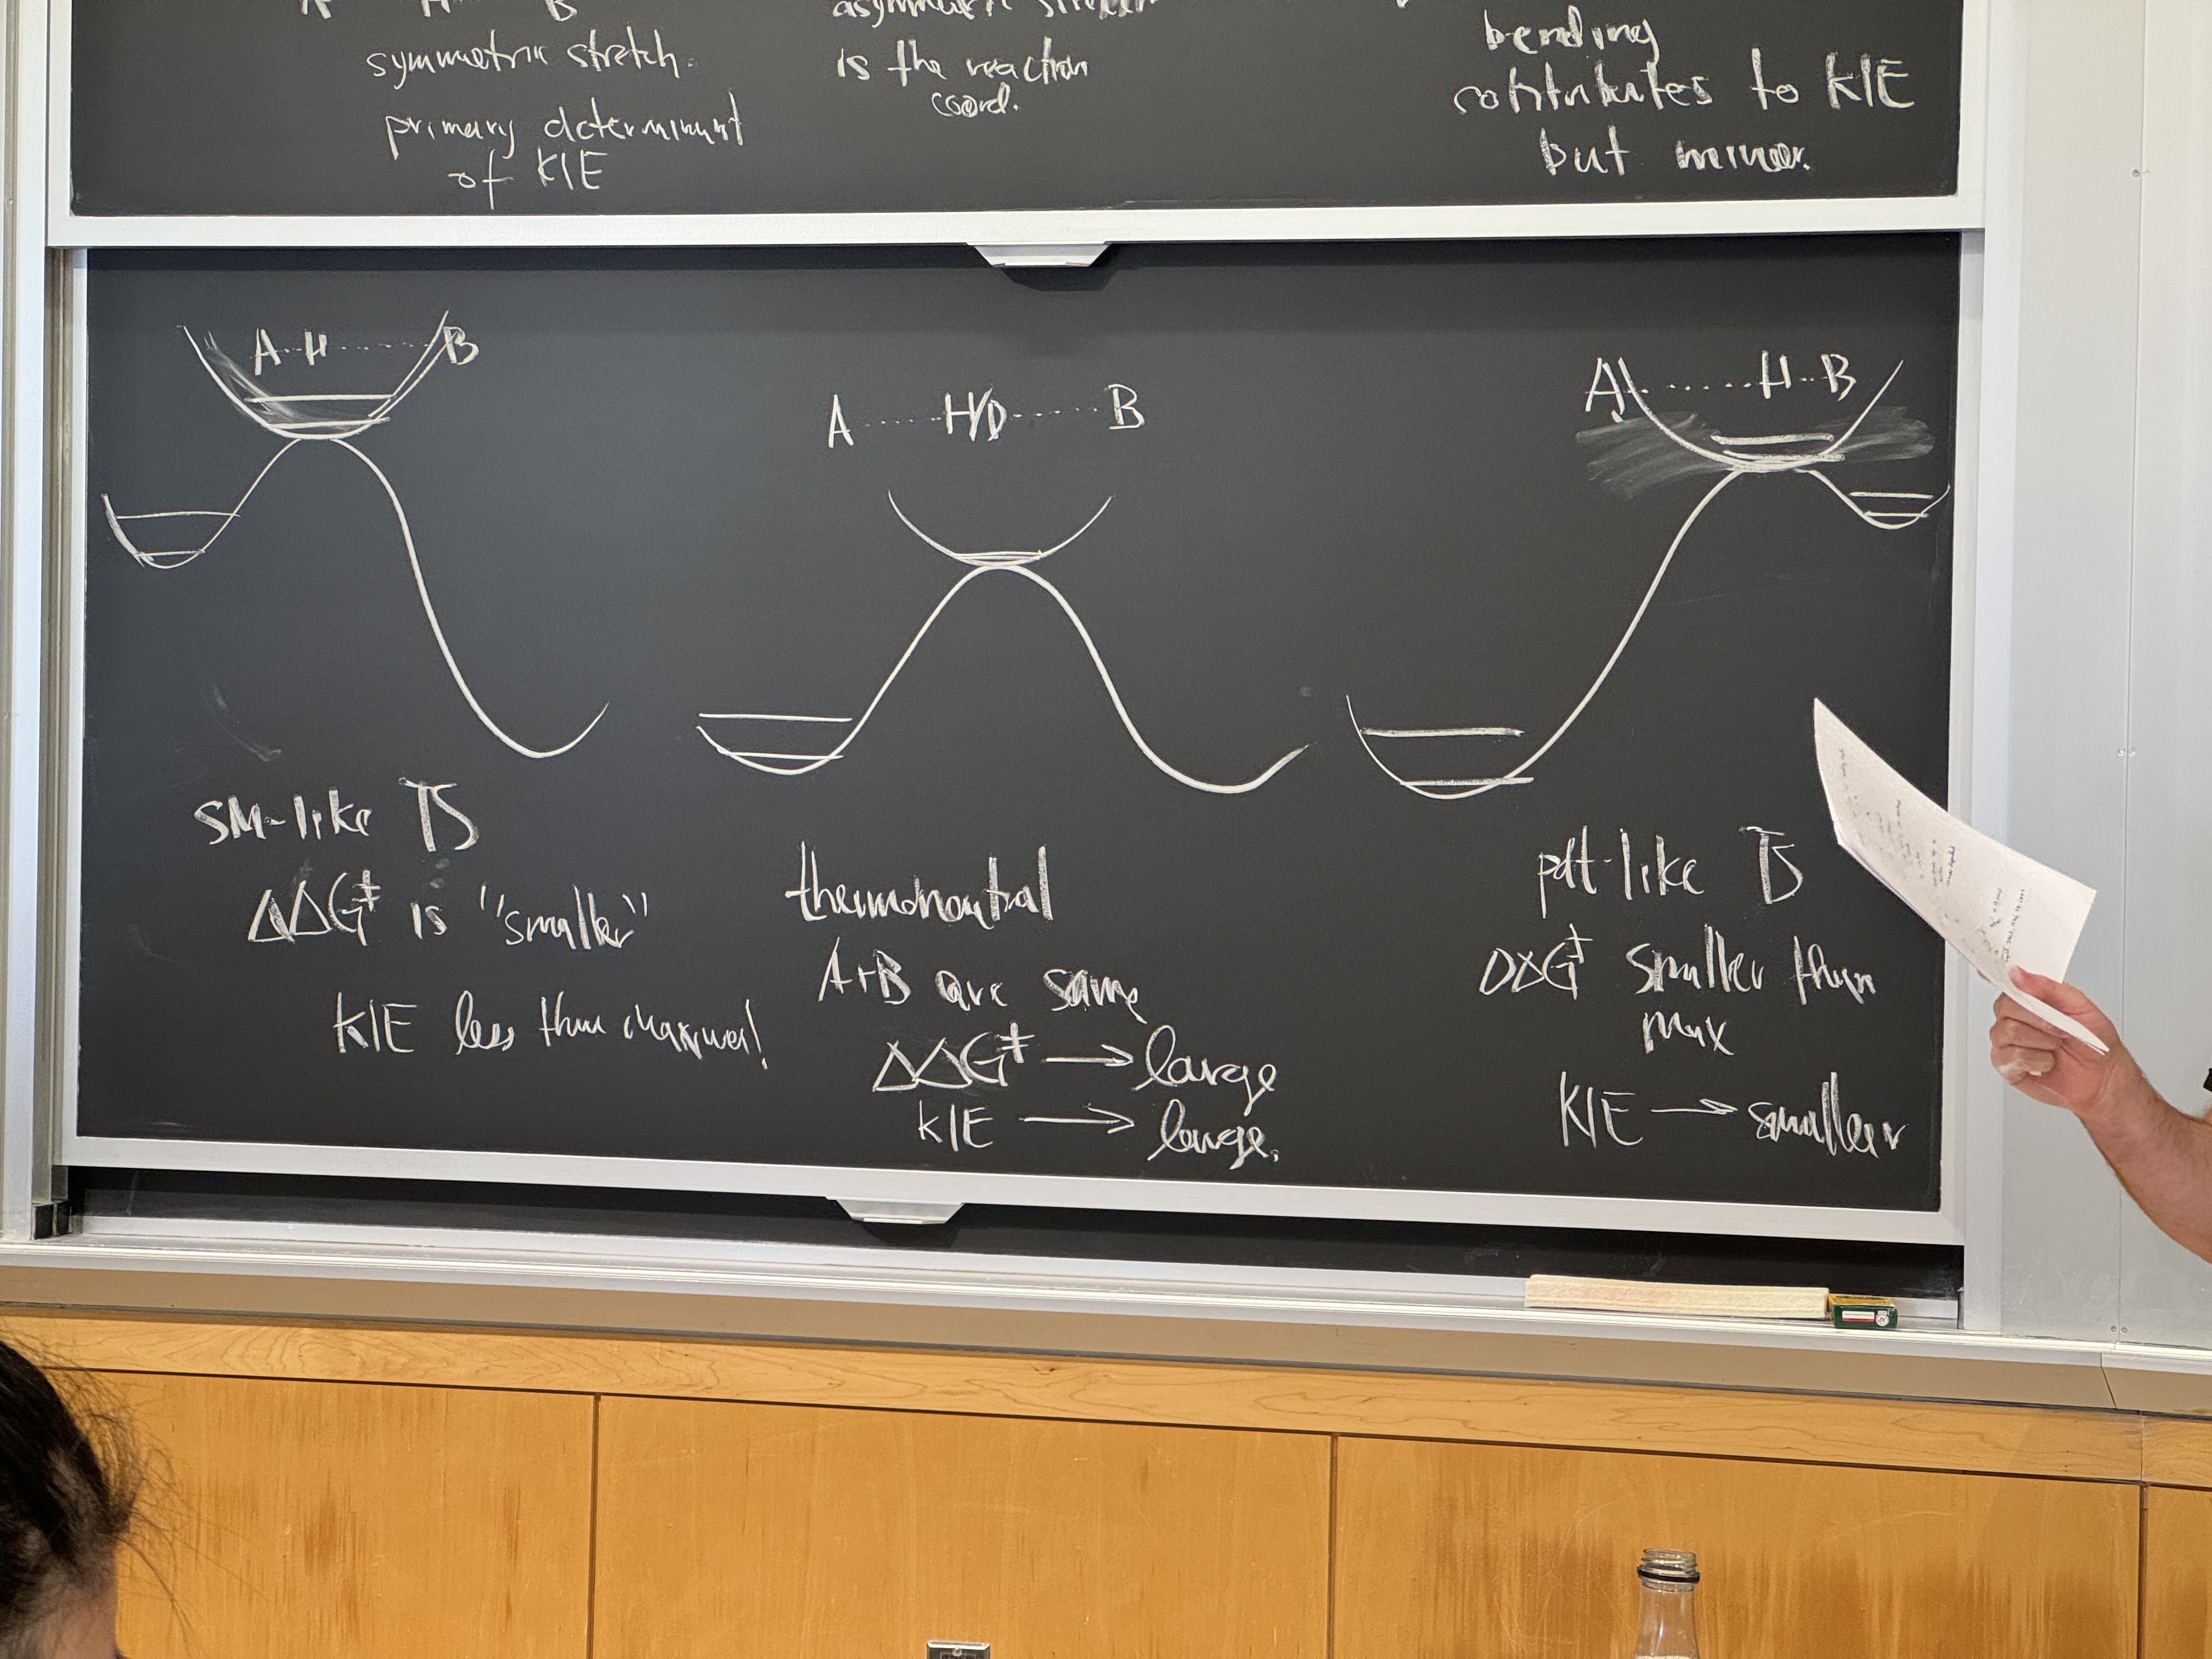 symmetric stretch.
primary determinant
of KIE
asymmetric stretch
is the reaction
coord.
bending
contributes to KIE
but minor.
A--H........B
SM-like TS
ΔΔG‡ is "smaller"
KIE less than maximal
A......H/D......B
thermoneutral
A+B are same
ΔΔG‡ → large
KIE → large.
A......H--B
pdt-like TS
ΔΔG‡ smaller than
max
KIE → smaller